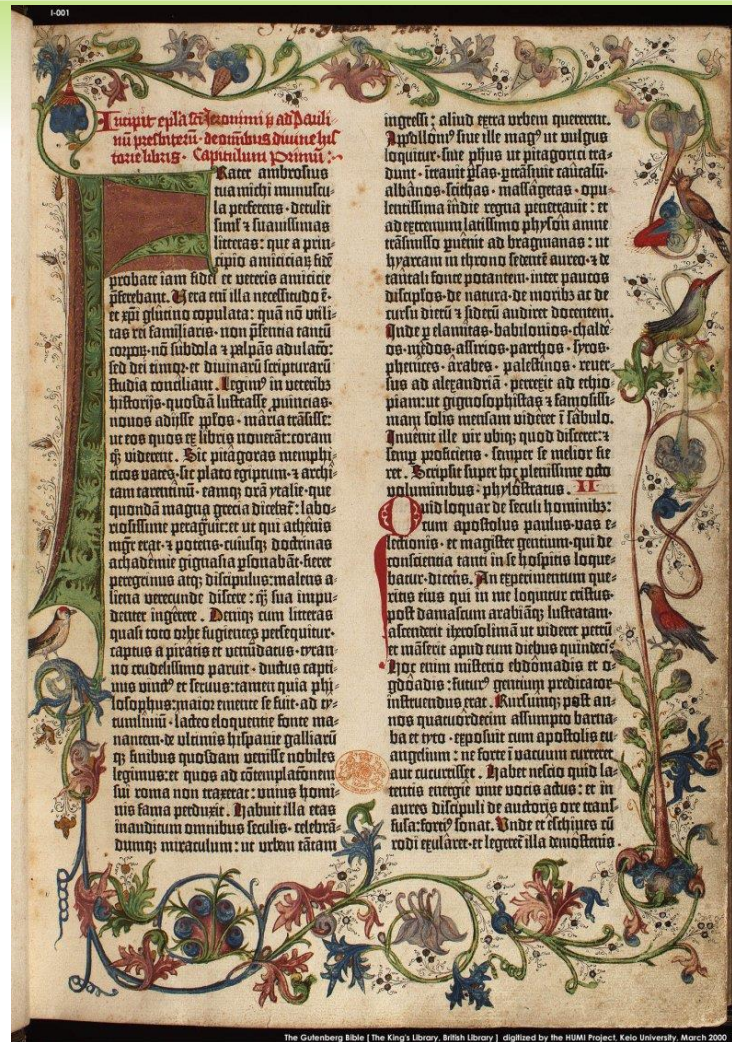 I-001
Incipit epl̃a sc̃i Jeronimi p̃ ad Pauli-
nū presbiterū · de om̃ibus divine his
torie libris · Capitulum Primū :·
Frater ambrosius
tua michi munuscu-
la perferens · detulit
siml̃ ⁊ suavissimas
litteras : que a prin-
cipio amiciciaꝝ fidē
probate iam fidei et veteris amicicie
p̃ferebant . Vera em̄ illa necessitudo ē ·
et xp̄i glutino copulata : quā nō utili-
tas rei familiaris · non p̃sentia tantū
corpoꝝ · nō subdola ⁊ palpās adulatō :
sed dei timor · et divinarū scripturarū
studia conciliant . Legimꝰ in veteribꝫ
historijs · quosdā lustrasse ꝓvincias ·
novos adijsse pp̄los · maria trāsisse :
ut eos quos ex libris noverāt : coram
qꝫ viderent . Sic pitagoras memphi-
ticos vates · sic plato egiptum · ⁊ archi-
tam tarentinū · eamqꝫ orā ytalie · que
quondā magna grecia diceba᷑ : labo-
riosissime peragravit : et ut qui athenis
mgr̃ erat · ⁊ potens · cuiusqꝫ doctrinas
achademie gignasia ꝑsonabāt · fieret
peregrinus atqꝫ discipulus : malens a-
liena verecunde discere : qꝫ sua impu-
denter ingerere . Deniqꝫ cum litteras
quasi toto orbe fugientes persequitur ·
captus a piratis et venūdatus · tyran-
no crudelissimo paruit · ductus capti-
vus vinctꝰ et servus : tamen quia phi-
losophus : maior emente se fuit · ad ty-
tumlivū · lacteo eloquentie fonte ma-
nantem · de ultimis hispanie galliarū
qꝫ finibus quosdam venisse nobiles
legimus : et quos ad cōtemplatōnem
sui roma non traxerat : unius homi-
nis fama perduxit . Habuit illa etas
inauditum omnibus seculis · celebrā-
dumqꝫ miraculum : ut urbem tātam
ingressi : aliud extra urbem quererent .
Appollonꝰ sive ille magꝰ ut vulgus
loquitur · sive ph̄us ut pitagorici tra-
dunt · ītravit ꝑsas · ꝑtrāsivit caucasū ·
albānos · scithas · massagetas · opu-
lentissima īndie regna penetravit : et
ad extremum latissimo physon amne
trāsmisso ꝑvēit ad bragmanas : ut
hyarcam in throno sedentē aureo · ⁊ de
tantali fonte potantem · inter paucos
discip̄los · de natura · de moribꝫ ac de
cursu dierū ⁊ siderū audiret docentem .
Inde ꝑ elamitas · babilonios · chalde-
os · mēdos · assirios · parthos · syros ·
phenices · ārabes · palestinos · rever-
sus ad alexandriā · perrexit ad ethio-
piam : ut gignosophistas ⁊ famosissi-
mam solis mensam videret ī sābulo .
Invēit ille vir ubiqꝫ quod disceret : ⁊
semꝑ proficiens · semper se melior fie-
ret . Scripsit super hoc plenissime octo
voluminibus · phylostratus . II
Quid loquar de seculi hominibꝫ :
cum apostolus paulus · vas e-
lectionis · et magister gentium · qui de
conscientia tanti in se hospitis loque-
batur · dicens . An experimentum que-
ritis eius qui in me loquitur cristus .
post damascum arabiāqꝫ lustratam ·
ascenderit iherosolimā ut videret petrū
et māserit apud eum diebus quindeci .
Hoc enim misterio ebdōmadis et o-
gdōadis : futurꝰ gentium predicator
instruendus erat . Rursumqꝫ post an-
nos quatuordecim assumpto barna-
ba et tyto · exposuit cum apostolis eu-
angelium : ne forte ī vacuum curreret
aut cucurrisset . Habet nescio quid la-
tentis energie vive vocis actus : et in
aures discipuli de auctoris ore trans-
fusa : fortiꝰ sonat . Unde et eschines cū
rodi exularet · et legere᷑ illa demostenis
The Gutenberg Bible [ The King's Library, British Library ] digitized by the HUMI Project, Keio University, March 2000